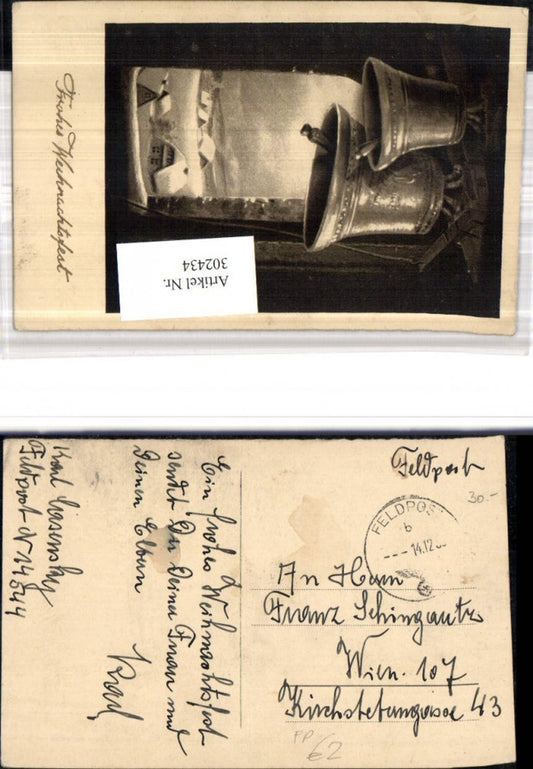 Frohes Weihnachtsfest
Artikel Nr.
302434
Feldpost
30.-
FELDPOST
b
--- 14.12
An Herrn
Franz Schingautz
Wien. 107
Kirchstetterngasse 43
FP
62
Ein frohes Weihnachtsfest
sendet Dir Deiner Frau und
Deinen Eltern
Karl
Karl
Feldpost Nr 14544